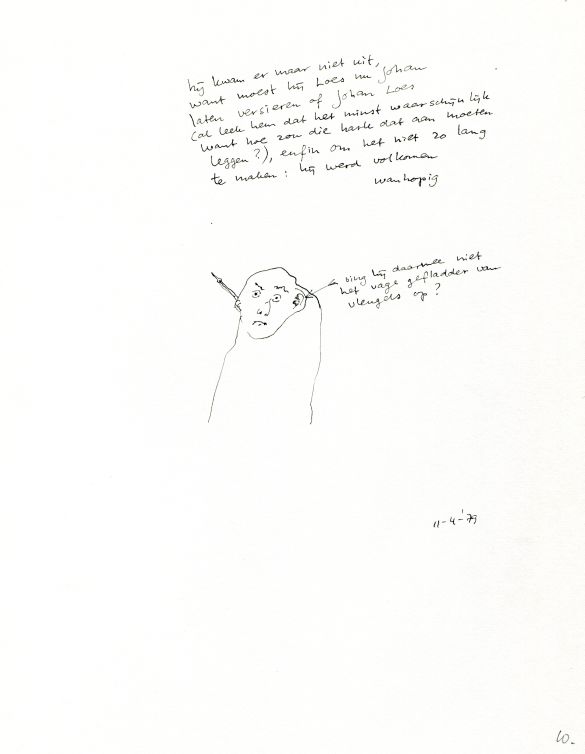 hij kwam er maar niet uit,
want moest hij Loes nu Johan
laten versieren of Johan Loes
(al leek hem dat het minst waarschijnlijk
want hoe zou die hark dat aan moeten
leggen?), enfin om het niet zo lang
te maken: hij werd volkomen
wanhopig
ving hij daarmee niet
het vage gefladder van
vleugels op?
11-4-'79
10.